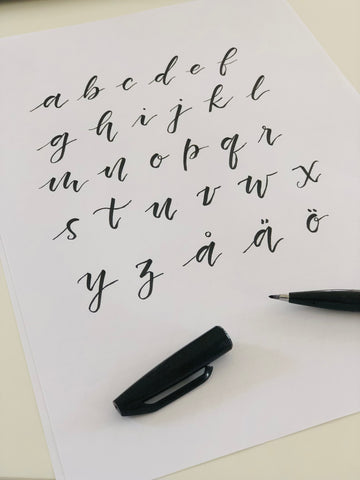 a b c d e f
g h i j k l
m n o p q r
s t u v w x
y z å ä ö